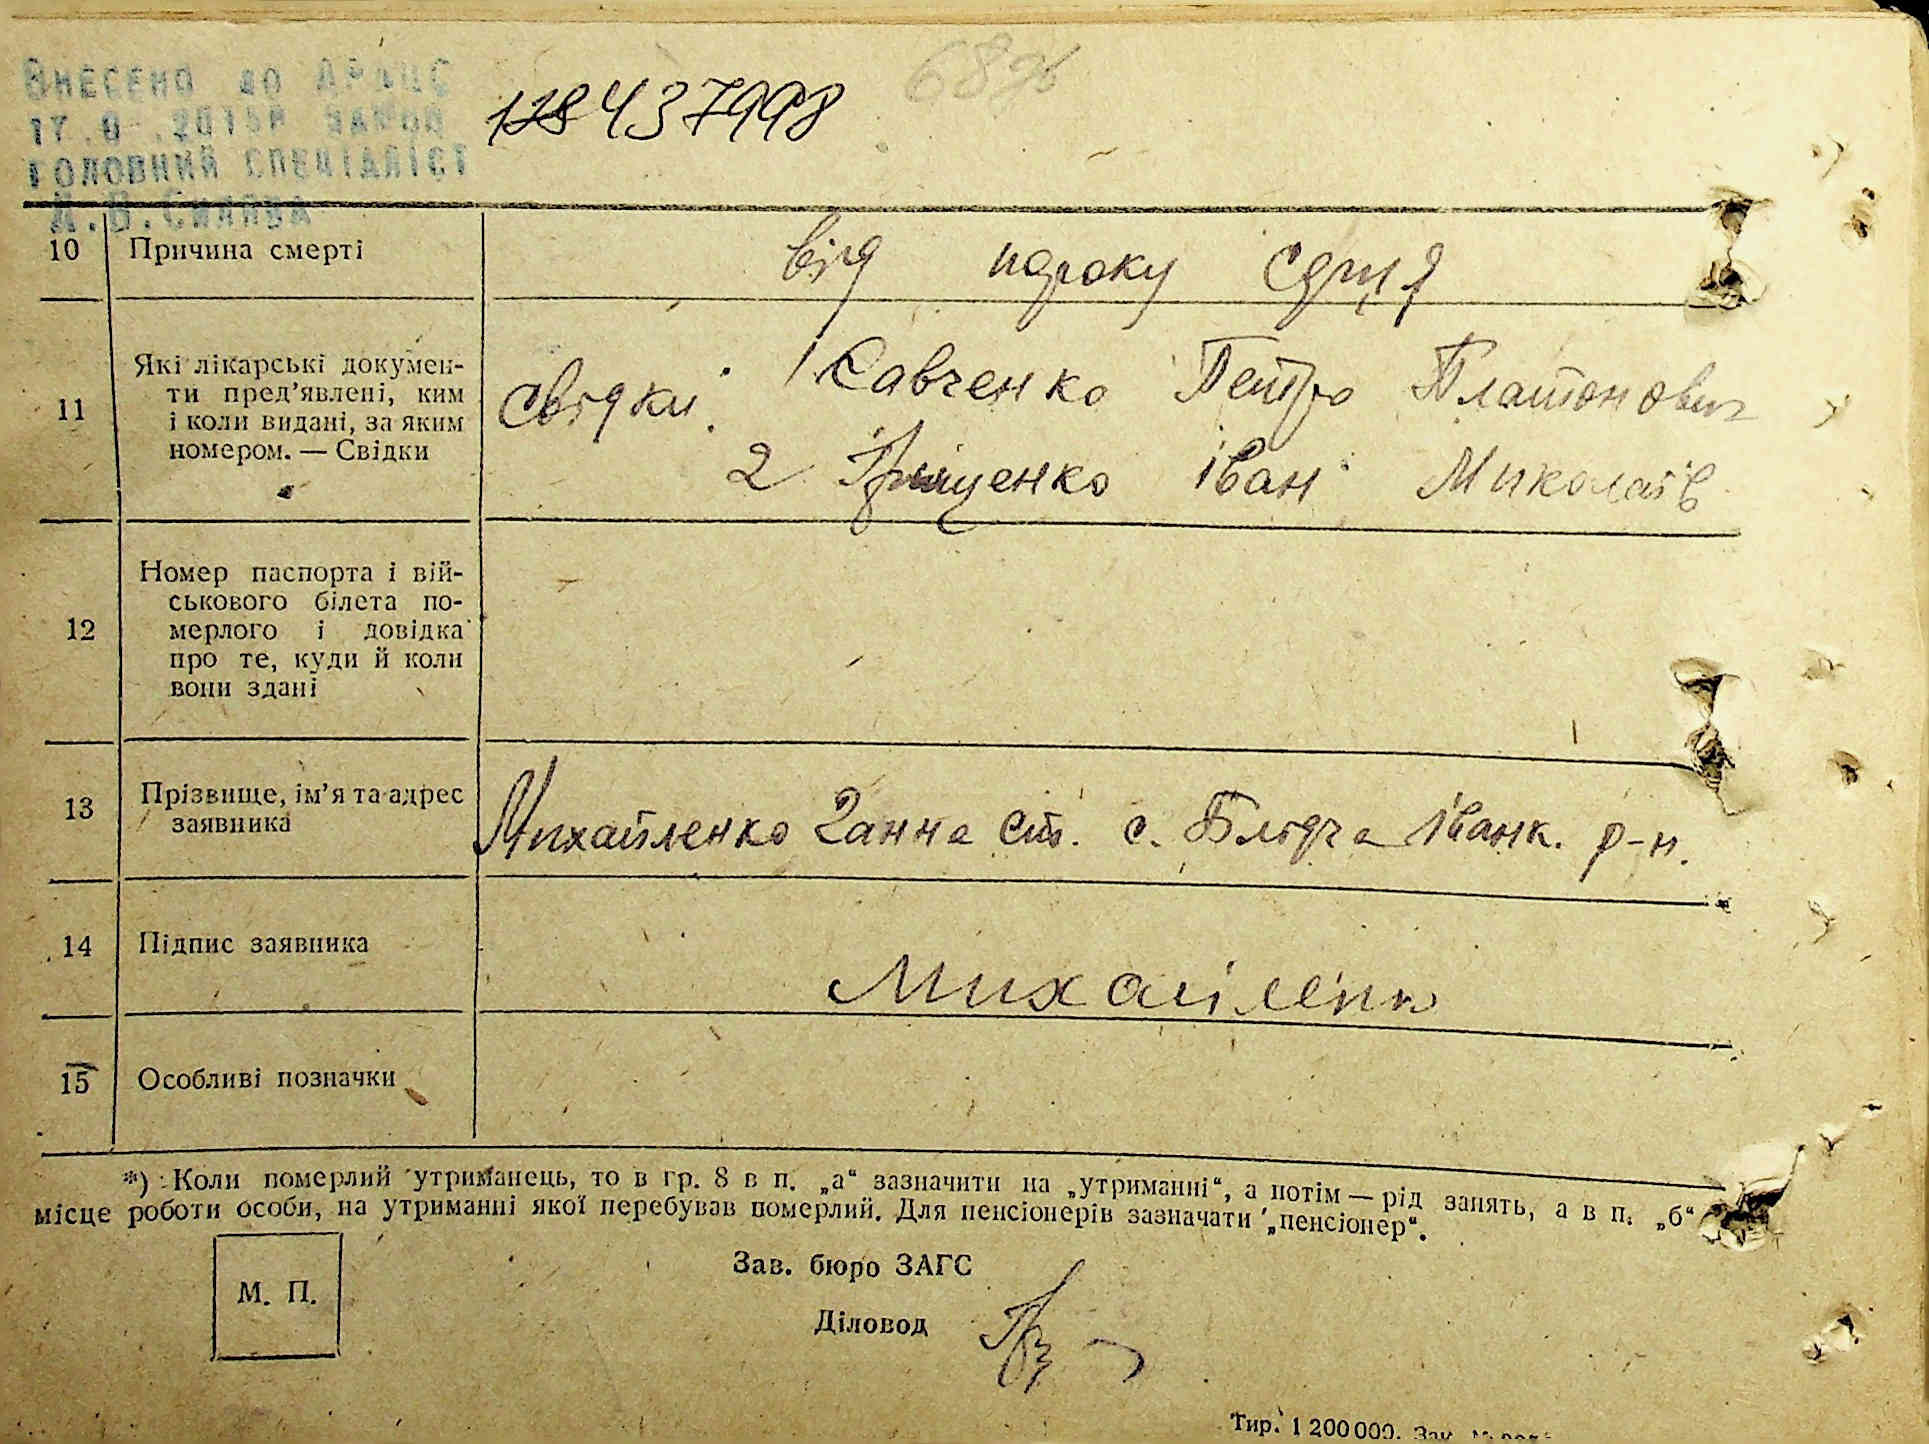 Внесено до ДРАЦС
головний спеціаліст
68
10 Причина смерті від пороку сдця
11 Які лікарські докумен-
ти пред'явлені, ким
і коли видані, за яким
номером. — Свідки
Свідки: 1 Савченко Петро Платонович
2 Грищенко Іван Миколаїв
12 Номер паспорта і вій-
ськового білета по-
мерлого і довідка
про те, куди й коли
вони здані
13 Прізвище, ім'я та адрес
заявника
Михайленко Ганна ст. с. Блідча Іванк. р-н.
14 Підпис заявника Михайленко
15 Особливі позначки
*) Коли померлий утриманець, то в гр. 8 в п. „а“ зазначити на „утриманні“, а потім — рід занять, а в п. „б“
місце роботи особи, на утриманні якої перебував померлий. Для пенсіонерів зазначати „пенсіонер“.
М. П.
Зав. бюро ЗАГС
Діловод
Тир. 1 200 000. Зак.